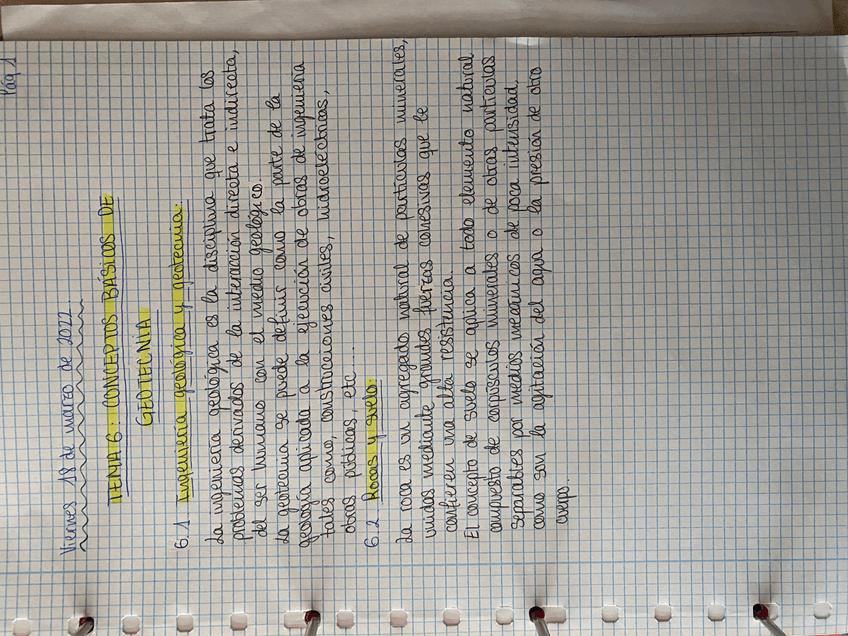 Pág 1
Viernes 18 de marzo de 2022.
TEMA 6: CONCEPTOS BÁSICOS DE
GEOTECNIA
6.1 Ingeniería geológica y geotecnia:
La ingeniería geológica es la disciplina que trata los
problemas derivados de la interacción directa e indirecta,
del ser humano con el medio geológico.
La geotecnia se puede definir como la parte de la
geología aplicada a la ejecución de obras de ingeniería
tales como, construcciones civiles, hidroeléctricas,
obras públicas, etc...
6.2 Rocas y suelo:
La roca es un agregado natural de partículas minerales,
unidos mediante grandes fuerzas cohesivas que le
confieren una alta resistencia.
El concepto de suelo se aplica a todo elemento natural
compuesto de corpúsculos minerales o de otras partículas
separables por medios mecánicos de poca intensidad,
como son la agitación del agua o la presión de otro
cuerpo.